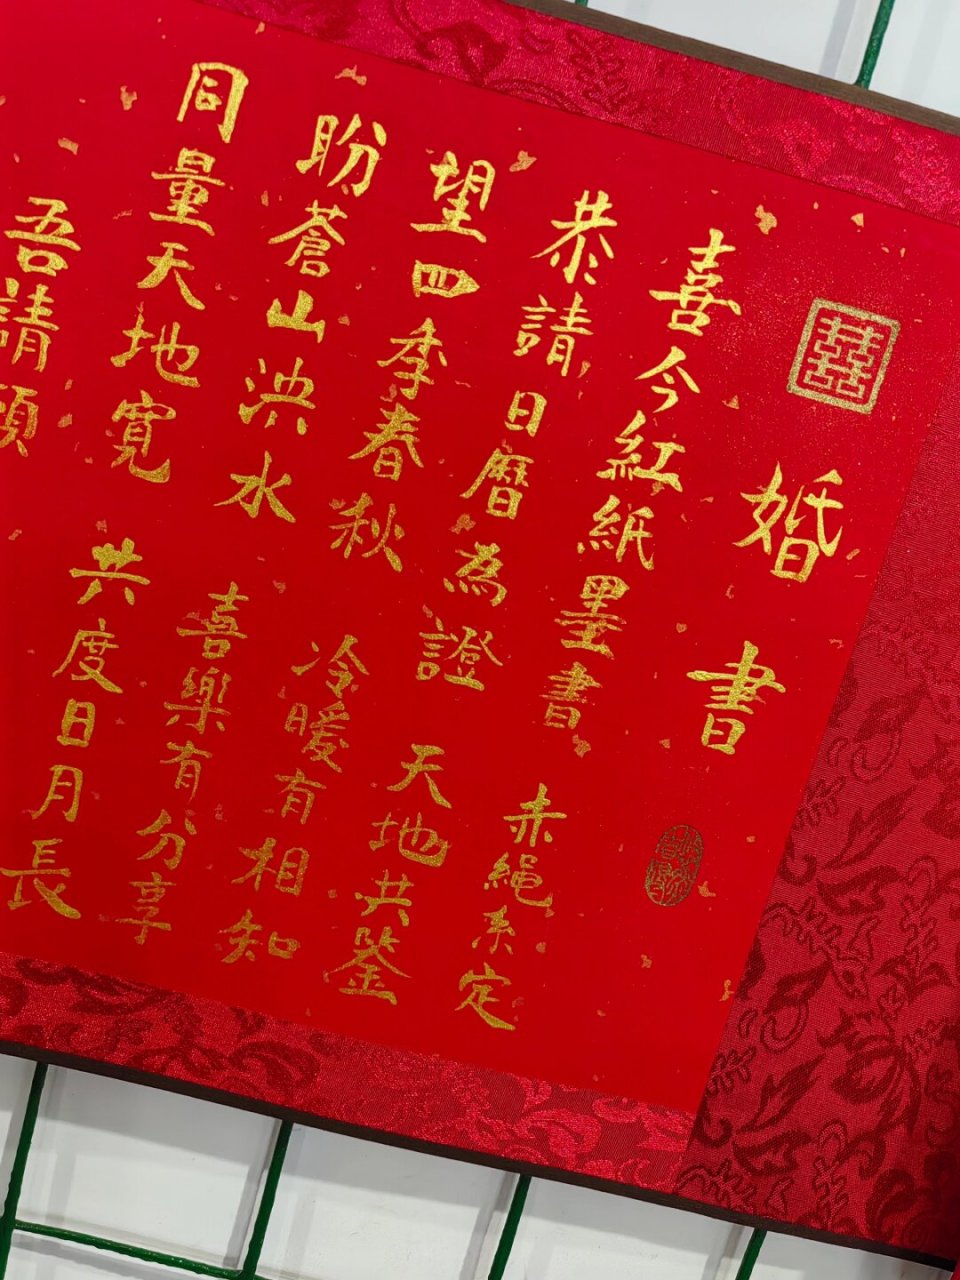 囍
婚書
喜今紅紙墨書 赤繩系定
恭請日曆為證 天地共鉴
望四季春秋 冷暖有相知
盼蒼山泱水 喜樂有分享
同量天地寬 共度日月長
吾請願